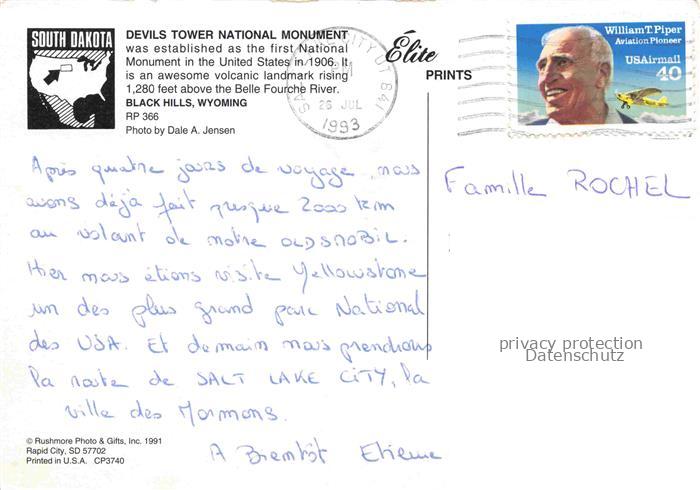 SOUTH DAKOTA
DEVILS TOWER NATIONAL MONUMENT
was established as the first National
Monument in the United States in 1906. It
is an awesome volcanic landmark rising
1,280 feet above the Belle Fourche River.
BLACK HILLS, WYOMING
RP 366
Photo by Dale A. Jensen
Élite
PRINTS
CITY UT 841
26 JUL
1993
William T. Piper
Aviation Pioneer
USAirmail
40
Après quatre jours de voyage, nous
avons déjà fait presque 2000 km
au volant de notre OLDSMOBIL.
Hier nous étions visite Yellowstone
un des plus grand parc National
des USA. Et demain nous prendrons
la route de SALT LAKE CITY, la
ville des Mormons.
A Bientôt Etienne
Famille ROCHEL
privacy protection
Datenschutz
© Rushmore Photo & Gifts, Inc. 1991
Rapid City, SD 57702
Printed in U.S.A. CP3740